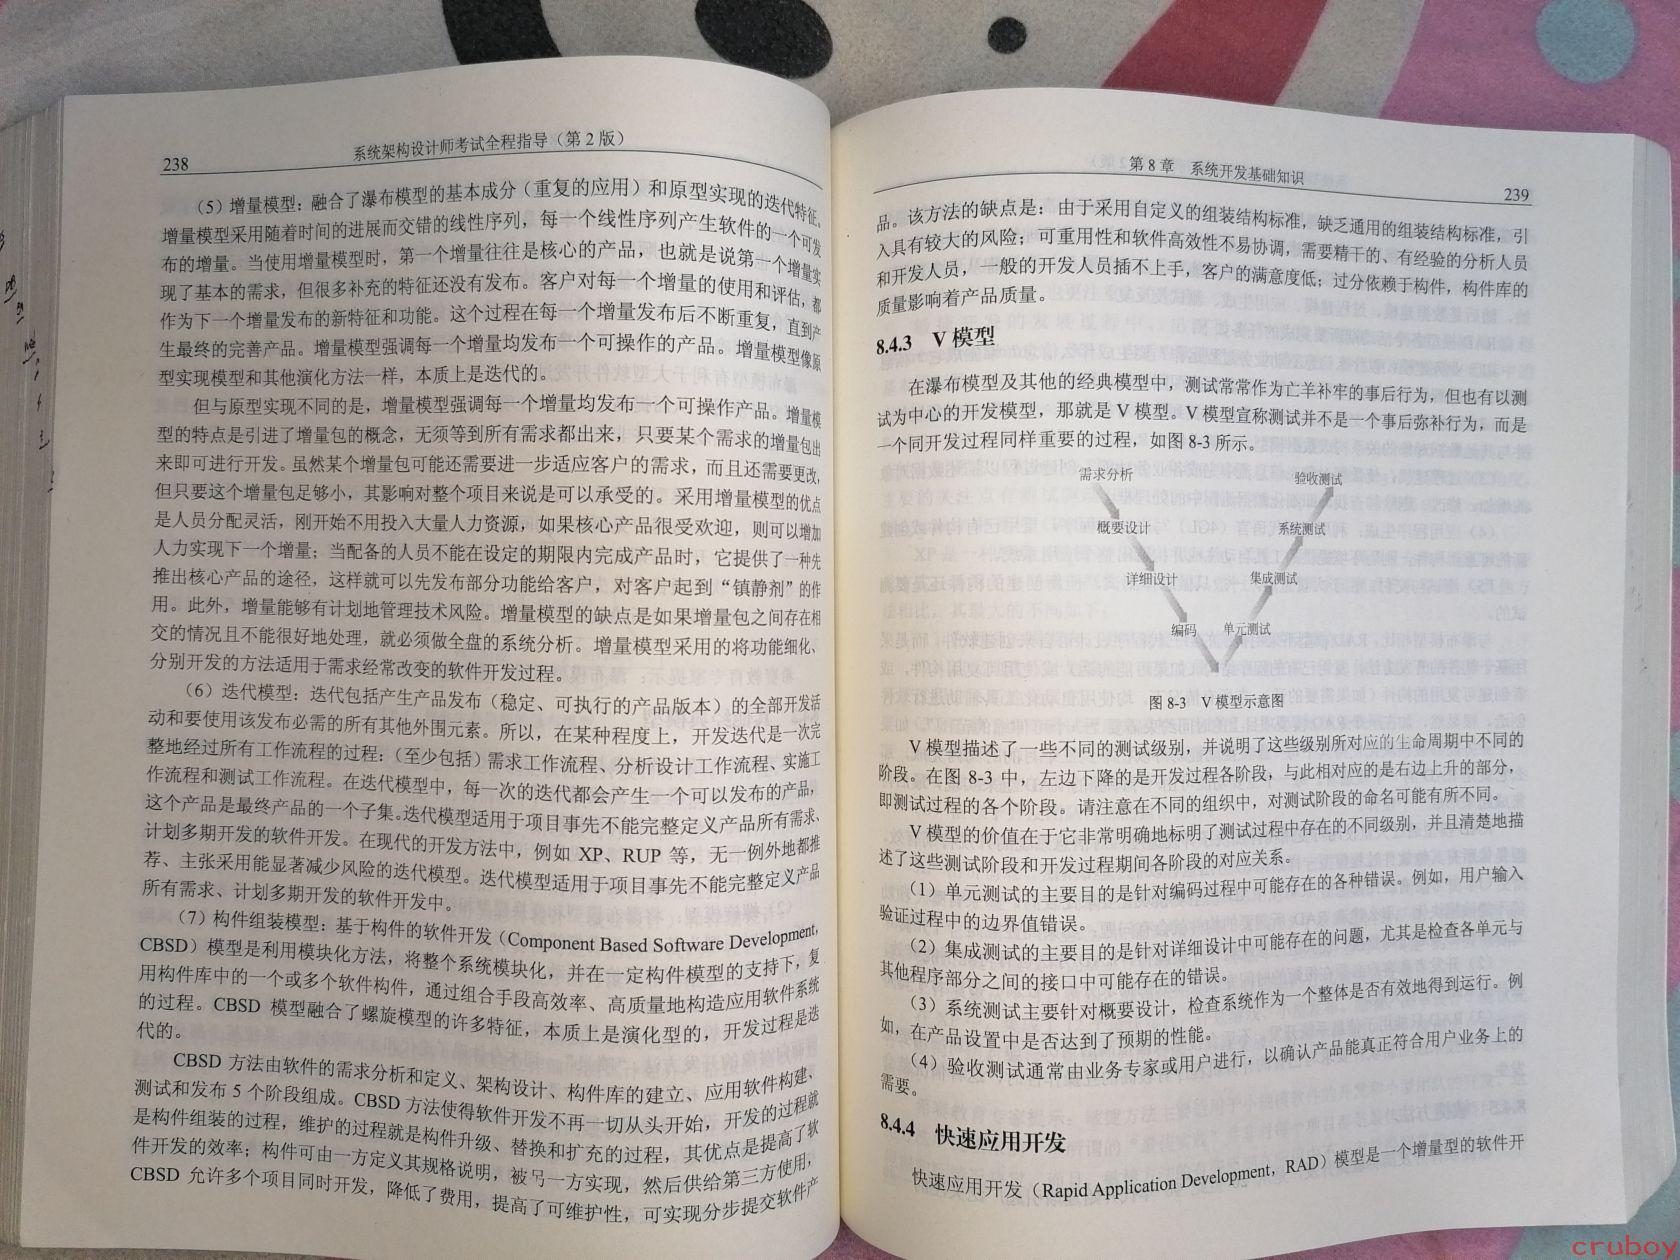 238
系统架构设计师考试全程指导（第 2 版）
（5）增量模型：融合了瀑布模型的基本成分（重复的应用）和原型实现的迭代特征。
增量模型采用随着时间的进展而交错的线性序列，每一个线性序列产生软件的一个可发
布的增量。当使用增量模型时，第一个增量往往是核心的产品，也就是说第一个增量实
现了基本的需求，但很多补充的特征还没有发布。客户对每一个增量的使用和评估，都
作为下一个增量发布的新特征和功能。这个过程在每一个增量发布后不断重复，直到产
生最终的完善产品。增量模型强调每一个增量均发布一个可操作的产品。增量模型像原
型实现模型和其他演化方法一样，本质上是迭代的。
但与原型实现不同的是，增量模型强调每一个增量均发布一个可操作产品。增量模
型的特点是引进了增量包的概念，无须等到所有需求都出来，只要某个需求的增量包出
来即可进行开发。虽然某个增量包可能还需要进一步适应客户的需求，而且还需要更改，
但只要这个增量包足够小，其影响对整个项目来说是可以承受的。采用增量模型的优点
是人员分配灵活，刚开始不用投入大量人力资源，如果核心产品很受欢迎，则可以增加
人力实现下一个增量；当配备的人员不能在设定的期限内完成产品时，它提供了一种先
推出核心产品的途径，这样就可以先发布部分功能给客户，对客户起到“镇静剂”的作
用。此外，增量能够有计划地管理技术风险。增量模型的缺点是如果增量包之间存在相
交的情况且不能很好地处理，就必须做全盘的系统分析。增量模型采用的将功能细化、
分别开发的方法适用于需求经常改变的软件开发过程。
（6）迭代模型：迭代包括产生产品发布（稳定、可执行的产品版本）的全部开发活
动和要使用该发布必需的所有其他外围元素。所以，在某种程度上，开发迭代是一次完
整地经过所有工作流程的过程：（至少包括）需求工作流程、分析设计工作流程、实施工
作流程和测试工作流程。在迭代模型中，每一次的迭代都会产生一个可以发布的产品，
这个产品是最终产品的一个子集。迭代模型适用于项目事先不能完整定义产品所有需求、
计划多期开发的软件开发。在现代的开发方法中，例如 XP、RUP 等，无一例外地都推
荐、主张采用能显著减少风险的迭代模型。迭代模型适用于项目事先不能完整定义产品
所有需求、计划多期开发的软件开发中。
（7）构件组装模型：基于构件的软件开发（Component Based Software Development，
CBSD）模型是利用模块化方法，将整个系统模块化，并在一定构件模型的支持下，复
用构件库中的一个或多个软件构件，通过组合手段高效率、高质量地构造应用软件系统
的过程。CBSD 模型融合了螺旋模型的许多特征，本质上是演化型的，开发过程是迭
代的。
CBSD 方法由软件的需求分析和定义、架构设计、构件库的建立、应用软件构建、
测试和发布 5 个阶段组成。CBSD 方法使得软件开发不再一切从头开始，开发的过程就
是构件组装的过程，维护的过程就是构件升级、替换和扩充的过程，其优点是提高了软
件开发的效率；构件可由一方定义其规格说明，被另一方实现，然后供给第三方使用，
CBSD 允许多个项目同时开发，降低了费用，提高了可维护性，可实现分步提交软件产
第 8 章 系统开发基础知识
239
品。该方法的缺点是：由于采用自定义的组装结构标准，缺乏通用的组装结构标准，引
入具有较大的风险；可重用性和软件高效性不易协调，需要精干的、有经验的分析人员
和开发人员，一般的开发人员插不上手，客户的满意度低；过分依赖于构件，构件库的
质量影响着产品质量。
8.4.3 V 模型
在瀑布模型及其他的经典模型中，测试常常作为亡羊补牢的事后行为，但也有以测
试为中心的开发模型，那就是 V 模型。V 模型宣称测试并不是一个事后弥补行为，而是
一个同开发过程同样重要的过程，如图 8-3 所示。
需求分析 验收测试
概要设计 系统测试
详细设计 集成测试
编码 单元测试
图 8-3 V 模型示意图
V 模型描述了一些不同的测试级别，并说明了这些级别所对应的生命周期中不同的
阶段。在图 8-3 中，左边下降的是开发过程各阶段，与此相对应的是右边上升的部分，
即测试过程的各个阶段。请注意在不同的组织中，对测试阶段的命名可能有所不同。
V 模型的价值在于它非常明确地标明了测试过程中存在的不同级别，并且清楚地描
述了这些测试阶段和开发过程期间各阶段的对应关系。
（1）单元测试的主要目的是针对编码过程中可能存在的各种错误。例如，用户输入
验证过程中的边界值错误。
（2）集成测试的主要目的是针对详细设计中可能存在的问题，尤其是检查各单元与
其他程序部分之间的接口中可能存在的错误。
（3）系统测试主要针对概要设计，检查系统作为一个整体是否有效地得到运行。例
如，在产品设置中是否达到了预期的性能。
（4）验收测试通常由业务专家或用户进行，以确认产品能真正符合用户业务上的
需要。
8.4.4 快速应用开发
快速应用开发（Rapid Application Development，RAD）模型是一个增量型的软件开
cruboy